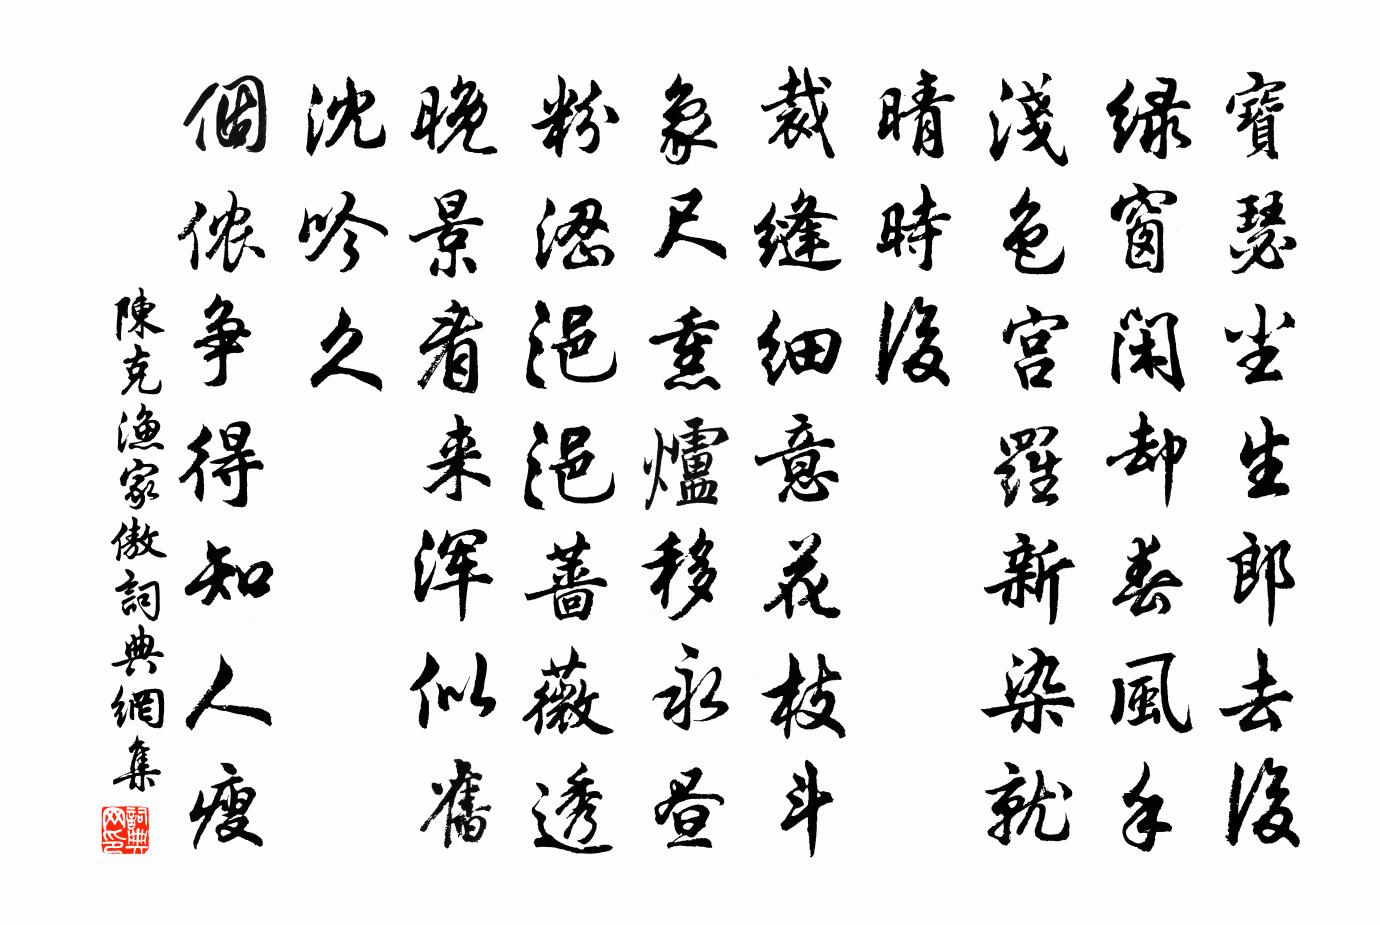 寶瑟尘生郎去後
绿窗閑却春風手
淺色宫羅新染就
晴時後
裁縫細意花枝斗
象尺熏爐移永昼
粉涊浥浥薔薇透
晚景看来浑似舊
沈吟久
個侬争得知人瘦
陳克漁家傲詞典網集
詞典网印